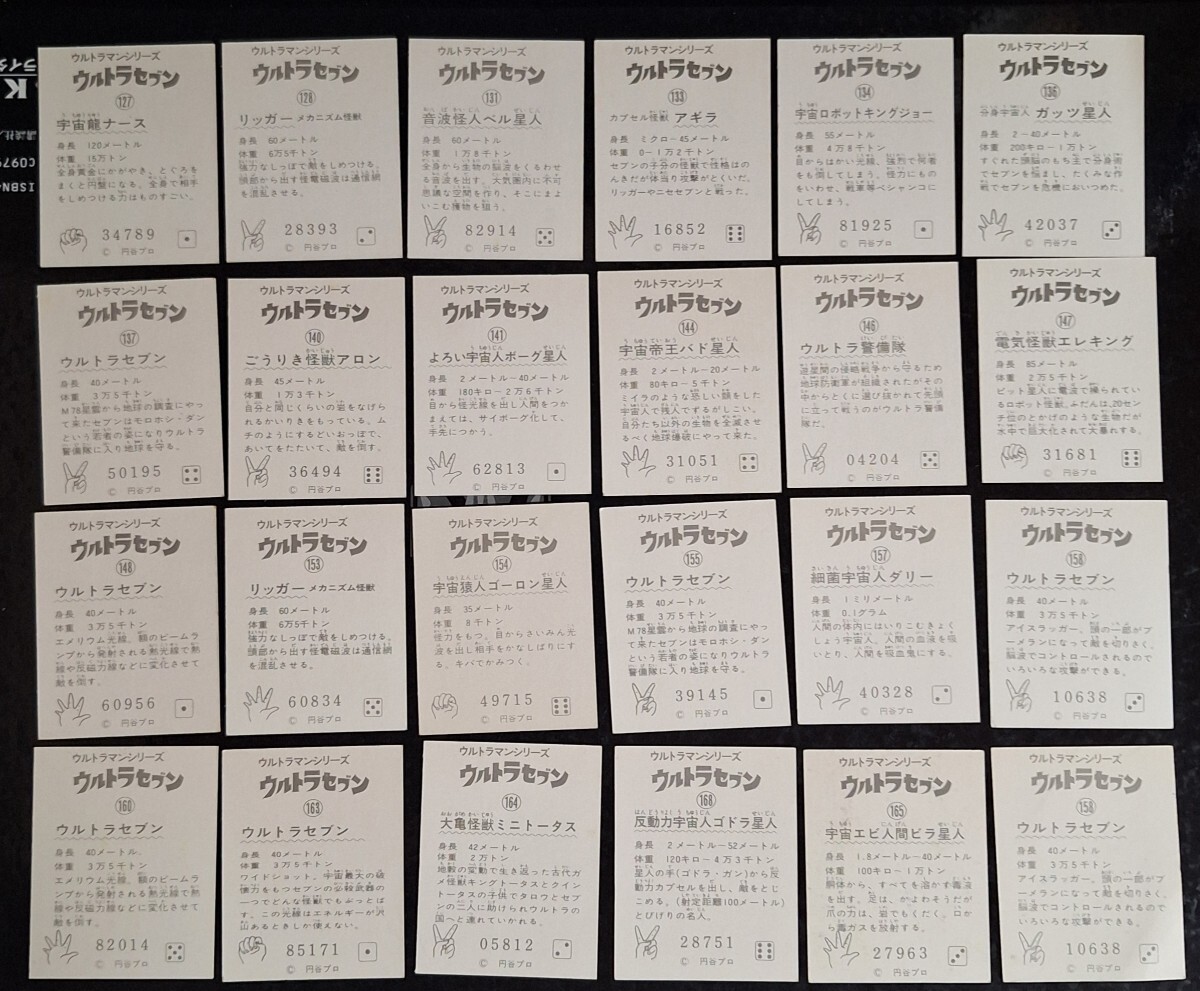 ウルトラマンシリーズ
ウルトラセブン
127
宇宙龍ナース
身長 120メートル
体重 15万トン
全身黄金にかがやき、とぐろを
まくと円盤になる。全身で相手
をしめつける力はものすごい。
34789
© 円谷プロ
ウルトラマンシリーズ
ウルトラセブン
128
リッガー メカニズム怪獣
身長 60メートル
体重 6万5千トン
強力なしっぽで敵をしめつける。
頭部から出す怪電磁波は通信網
を混乱させる。
28393
© 円谷プロ
ウルトラマンシリーズ
ウルトラセブン
131
音波怪人ベル星人
身長 60メートル
体重 1万8千トン
全身から生物の脳波をくるわせ
る音波を出す。大気圏内に不可
思議な空間を作り、そこにまよ
いこむ獲物を狙う。
82914
© 円谷プロ
ウルトラマンシリーズ
ウルトラセブン
133
カプセル怪獣 アギラ
身長 ミクロ-45メートル
体重 0-1万2千トン
セブンの子分の怪獣で性格はの
んきだが体当り攻撃がとくいだ。
リッガーやニセセブンと戦った。
16852
© 円谷プロ
ウルトラマンシリーズ
ウルトラセブン
134
宇宙ロボットキングジョー
身長 55メートル
体重 4万8千トン
目からはかい光線、強烈で何者
をも倒してしまう。怪力にもの
をいわせ、戦車等ペシャンコに
してしまう。
81925
© 円谷プロ
ウルトラマンシリーズ
ウルトラセブン
136
分身宇宙人 ガッツ星人
身長 2-40メートル
体重 200キロ-1万トン
すぐれた頭脳のもち主で分身術
でセブンを悩まし、たくみな作
戦でセブンを危機においつめた。
42037
© 円谷プロ
ウルトラマンシリーズ
ウルトラセブン
137
ウルトラセブン
身長 40メートル
体重 3万5千トン
M78星雲から地球の調査にやっ
て来たセブンはモロホシ・ダン
という若者の姿になりウルトラ
警備隊に入り地球を守る。
50195
© 円谷プロ
ウルトラマンシリーズ
ウルトラセブン
140
ごうりき怪獣アロン
身長 45メートル
体重 1万3千トン
自分と同じくらいの岩をなげら
れるかいりきをもっている。ム
チのようにするどいおっぽで、
あいてをたたいて、敵を倒す。
36494
© 円谷プロ
ウルトラマンシリーズ
ウルトラセブン
141
よろい宇宙人ボーグ星人
身長 2メートル-40メートル
体重 180キロ-2万6千トン
目から怪光線を出し人間をつか
まえては、サイボーグ化して、
手先につかう。
62813
© 円谷プロ
ウルトラマンシリーズ
ウルトラセブン
144
宇宙帝王バド星人
身長 2メートル-20メートル
体重 80キロ-5千トン
ミイラのような恐しい顔をした
宇宙人で残人でずるがしこい。
自分たち以外の生物を全滅させ
るべく地球爆破にやって来た。
31051
© 円谷プロ
ウルトラマンシリーズ
ウルトラセブン
146
ウルトラ警備隊
遊星間の侵略戦争から守るため
地球防衛軍が組織されたがその
中からとくに選び抜かれて先頭
に立って戦うのがウルトラ警備
隊だ。
04204
© 円谷プロ
ウルトラマンシリーズ
ウルトラセブン
147
電気怪獣エレキング
身長 85メートル
体重 2万5千トン
ピット星人に電波で操られてい
るロボット怪獣。ふだんは、20セン
チ位のとかげのような生物だが
水中で巨大化されて大暴れする。
31681
© 円谷プロ
ウルトラマンシリーズ
ウルトラセブン
148
ウルトラセブン
身長 40メートル
体重 3万5千トン
エメリウム光線、額のビームラ
ンプから発射される熱光線で熱
線や反磁力線などに変化させて
敵を倒す。
60956
© 円谷プロ
ウルトラマンシリーズ
ウルトラセブン
153
リッガー メカニズム怪獣
身長 60メートル
体重 6万5千トン
強力なしっぽで敵をしめつける。
頭部から出す怪電磁波は通信網
を混乱させる。
60834
© 円谷プロ
ウルトラマンシリーズ
ウルトラセブン
154
宇宙猿人ゴーロン星人
身長 35メートル
体重 8千トン
怪力をもつ。目からさいみん光
波を出し相手をかなしばりにす
る。キバでかみつく。
49715
© 円谷プロ
ウルトラマンシリーズ
ウルトラセブン
155
ウルトラセブン
身長 40メートル
体重 3万5千トン
M78星雲から地球の調査にやっ
て来たセブンはモロホシ・ダン
という若者の姿になりウルトラ
警備隊に入り地球を守る。
39145
© 円谷プロ
ウルトラマンシリーズ
ウルトラセブン
157
細菌宇宙人ダリー
身長 1ミリメートル
体重 0.1グラム
人間の体内にはいりこむきょく
しょう宇宙人。人間の血液を吸
いとり、人間を吸血鬼にする。
40328
© 円谷プロ
ウルトラマンシリーズ
ウルトラセブン
158
ウルトラセブン
身長 40メートル
体重 3万5千トン
アイスラッガー、頭の一部がブ
ーメランになって敵を切りさく。
脳波でコントロールされるので
いろいろな攻撃ができる。
10638
© 円谷プロ
ウルトラマンシリーズ
ウルトラセブン
160
ウルトラセブン
身長 40メートル、
体重 3万5千トン
エメリウム光線、額のビームラ
ンプから発射される熱光線で熱
線や反磁力線などに変化させて
敵を倒す。
82014
© 円谷プロ
ウルトラマンシリーズ
ウルトラセブン
163
ウルトラセブン
身長 40メートル
体重 3万5千トン
ワイドショット、宇宙最大の破
懐力をもつセブンの必殺武器の
一つでどんな怪獣でもぶっとば
す。この光線はエネルギーが沢
山あるときしか使えない。
85171
© 円谷プロ
ウルトラマンシリーズ
ウルトラセブン
164
大亀怪獣ミニトータス
身長 42メートル
体重 2万トン
地殻の変動で生き返った古代ガ
メ怪獣キングトータスとクイン
トータスの子供でタロウとセブ
ンの二人に助けられウルトラの
国へと連れていかれる。
05812
© 円谷プロ
ウルトラマンシリーズ
ウルトラセブン
168
反動力宇宙人ゴドラ星人
身長 2メートル-52メートル
体重 120キロ-4万3千トン
星人の手(ゴドラ・ガン)から反
動力カプセルを出し、敵をとじ
こめる。(射定距離100メートル)
とびげりの名人。
28751
© 円谷プロ
ウルトラマンシリーズ
ウルトラセブン
165
宇宙エビ人間ビラ星人
身長 1.8メートル-40メートル
体重 100キロ-1万トン
胴体から、すべてを溶かす毒波
を出す。足は、かよわそうだが
爪の力は、岩でもくだく。口か
ら毒ガスを放射する。
27963
© 円谷プロ
ウルトラマンシリーズ
ウルトラセブン
158
ウルトラセブン
身長 40メートル
体重 3万5千トン
アイスラッガー、頭の一部がブ
ーメランになって敵を切りさく。
脳波でコントロールされるので
いろいろな攻撃ができる。
10638
© 円谷プロ